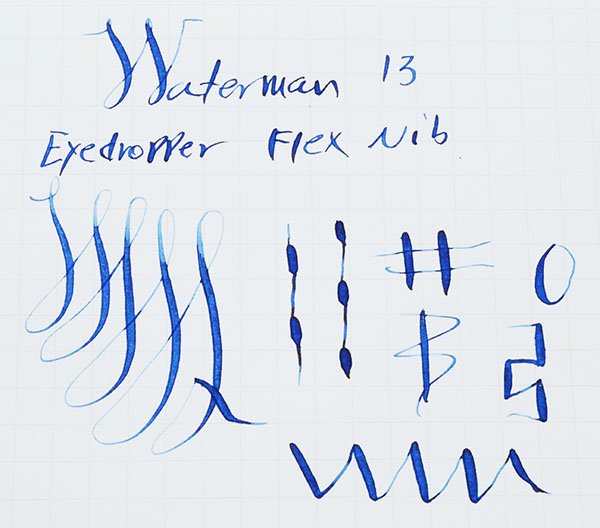 Waterman 13
Eyedropper Flex Nib